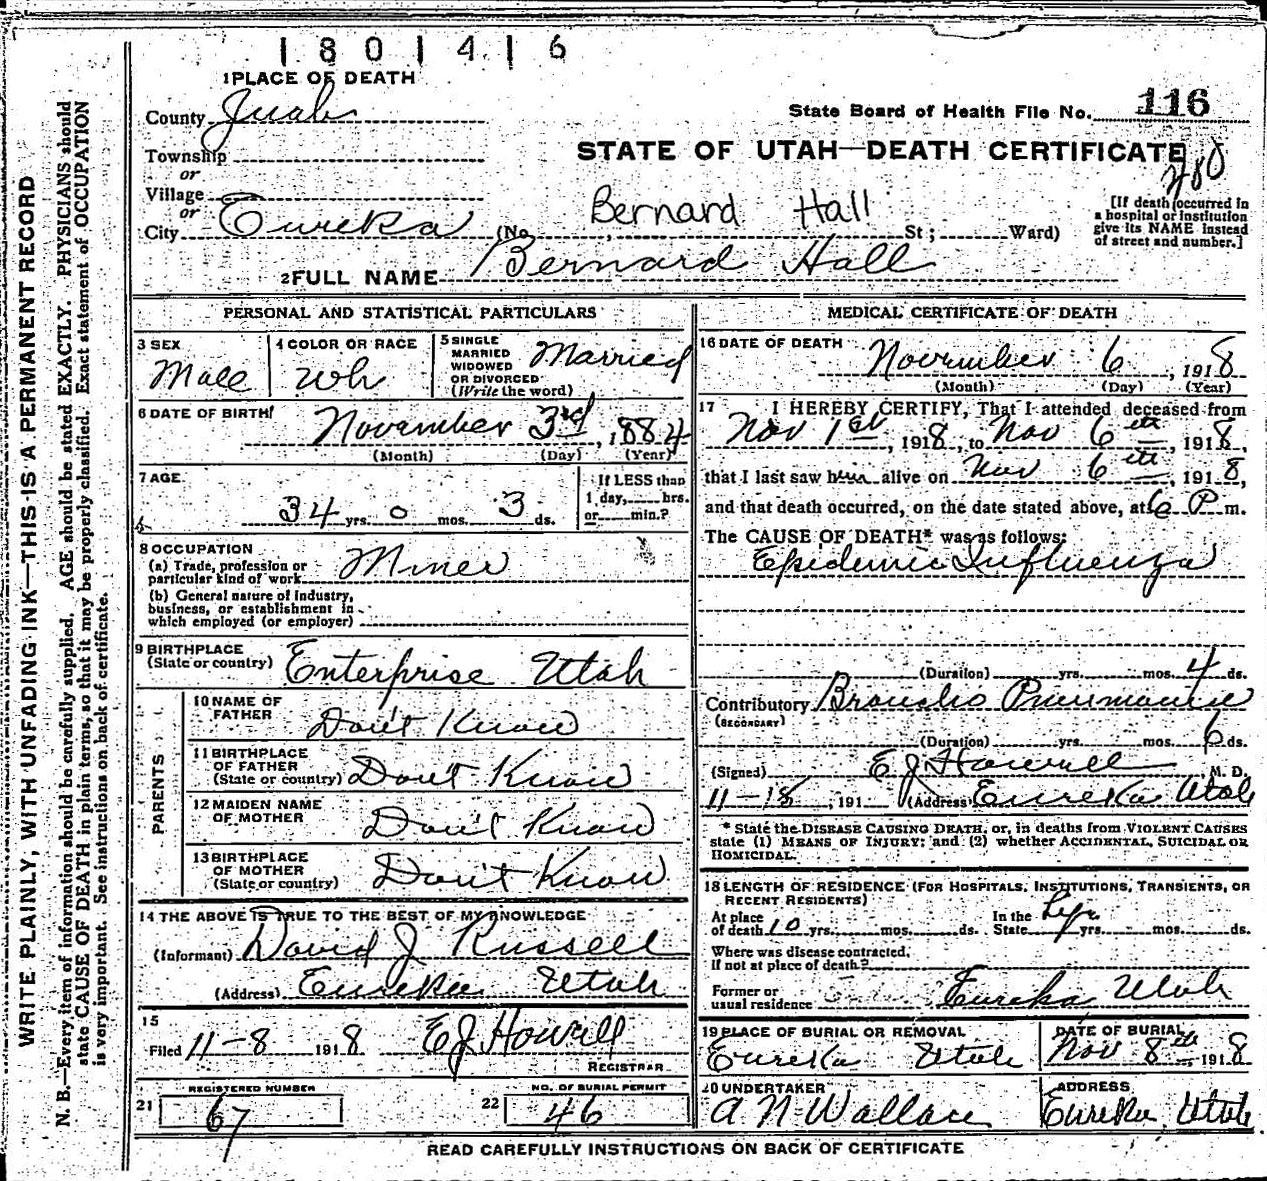 1801416
1 PLACE OF DEATH
County Juab
State Board of Health File No. 116
Township
or
STATE OF UTAH—DEATH CERTIFICATE
Village
or
City Eureka (No. , St; Ward)
Bernard Hall
[If death occurred in
a hospital or institution
give its NAME instead
of street and number.]
2 FULL NAME Bernard Hall
PERSONAL AND STATISTICAL PARTICULARS
3 SEX
Male
4 COLOR OR RACE
Wh
5 SINGLE
MARRIED
WIDOWED
OR DIVORCED
(Write the word)
Married
6 DATE OF BIRTH
November 3rd, 1884
(Month) (Day) (Year)
7 AGE
34 yrs. 0 mos. 3 ds.
If LESS than
1 day, hrs.
or min.?
8 OCCUPATION
(a) Trade, profession or
particular kind of work Miner
(b) General nature of industry,
business, or establishment in
which employed (or employer)
9 BIRTHPLACE
(State or country) Enterprise Utah
PARENTS
10 NAME OF
FATHER Don't Know
11 BIRTHPLACE
OF FATHER
(State or country) Don't Know
12 MAIDEN NAME
OF MOTHER Don't Know
13 BIRTHPLACE
OF MOTHER
(State or country) Don't Know
14 THE ABOVE IS TRUE TO THE BEST OF MY KNOWLEDGE
(Informant) David J Russell
(Address) Eureka Utah
15
Filed 11-8 1918 E J Howell
REGISTRAR
REGISTERED NUMBER
21 67
NO. OF BURIAL PERMIT
22 46
MEDICAL CERTIFICATE OF DEATH
16 DATE OF DEATH
November 6, 1918
(Month) (Day) (Year)
17 I HEREBY CERTIFY, That I attended deceased from
Nov 1st, 1918, to Nov 6th, 1918,
that I last saw him alive on Nov 6th, 1918,
and that death occurred, on the date stated above, at 6 P m.
The CAUSE OF DEATH* was as follows:
Epidemic Influenza
(Duration) yrs. mos. 4 ds.
Contributory Broncho Pneumonia
(SECONDARY)
(Duration) yrs. mos. 6 ds.
(Signed) E J Howell M. D.
11-18, 191 (Address) Eureka Utah
* State the DISEASE CAUSING DEATH, or, in deaths from VIOLENT CAUSES
state (1) MEANS OF INJURY; and (2) whether ACCIDENTAL, SUICIDAL OR
HOMICIDAL.
18 LENGTH OF RESIDENCE (FOR HOSPITALS, INSTITUTIONS, TRANSIENTS, OR
RECENT RESIDENTS)
At place
of death 10 yrs. mos. ds.
In the
State yrs. mos. ds.
Where was disease contracted,
if not at place of death?
Former or
usual residence Eureka Utah
19 PLACE OF BURIAL OR REMOVAL
Eureka Utah
DATE OF BURIAL
Nov 8th 1918
20 UNDERTAKER
A N Wallace
ADDRESS
Eureka, Utah
READ CAREFULLY INSTRUCTIONS ON BACK OF CERTIFICATE
WRITE PLAINLY, WITH UNFADING INK—THIS IS A PERMANENT RECORD
N. B.—Every item of information should be carefully supplied. AGE should be stated EXACTLY. PHYSICIANS should
state CAUSE OF DEATH in plain terms, so that it may be properly classified. Exact statement of OCCUPATION
is very important. See instructions on back of certificate.